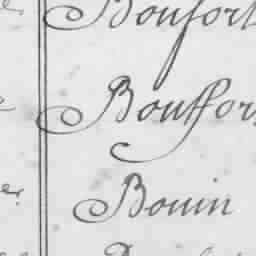 Boufort
Bouffor
Bouin